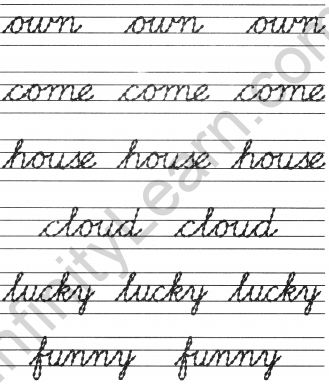 own own own
come come come
house house house
cloud cloud
lucky lucky lucky
funny funny
InfinityLearn.com